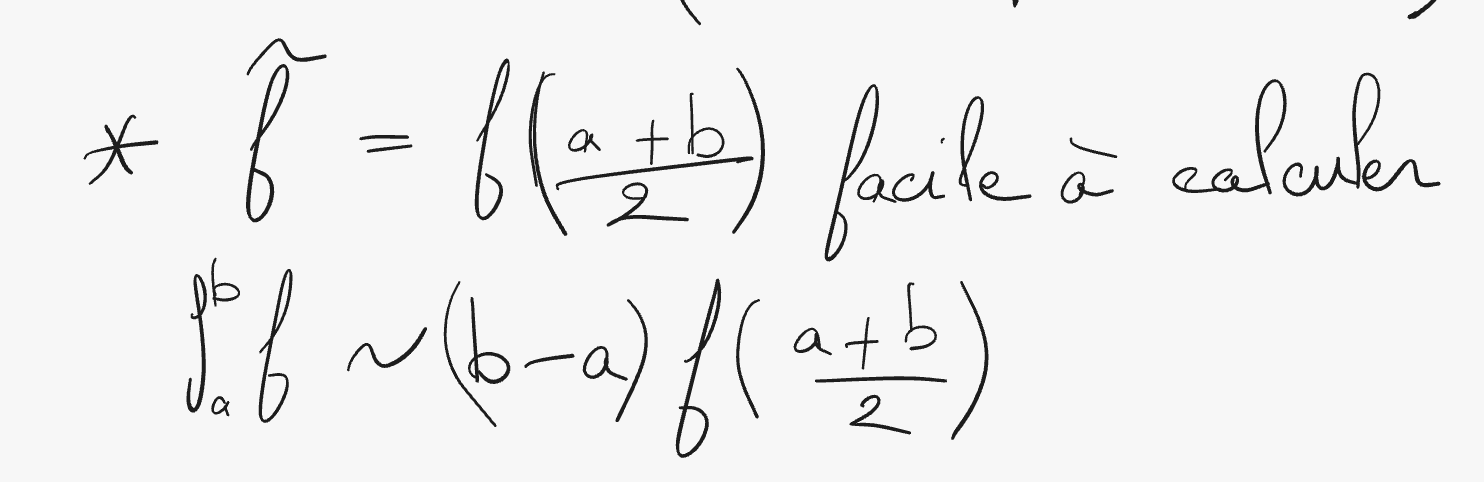 * f̃ = f((a+b)/2) facile à calculer
∫_a^b f ~ (b-a) f((a+b)/2)